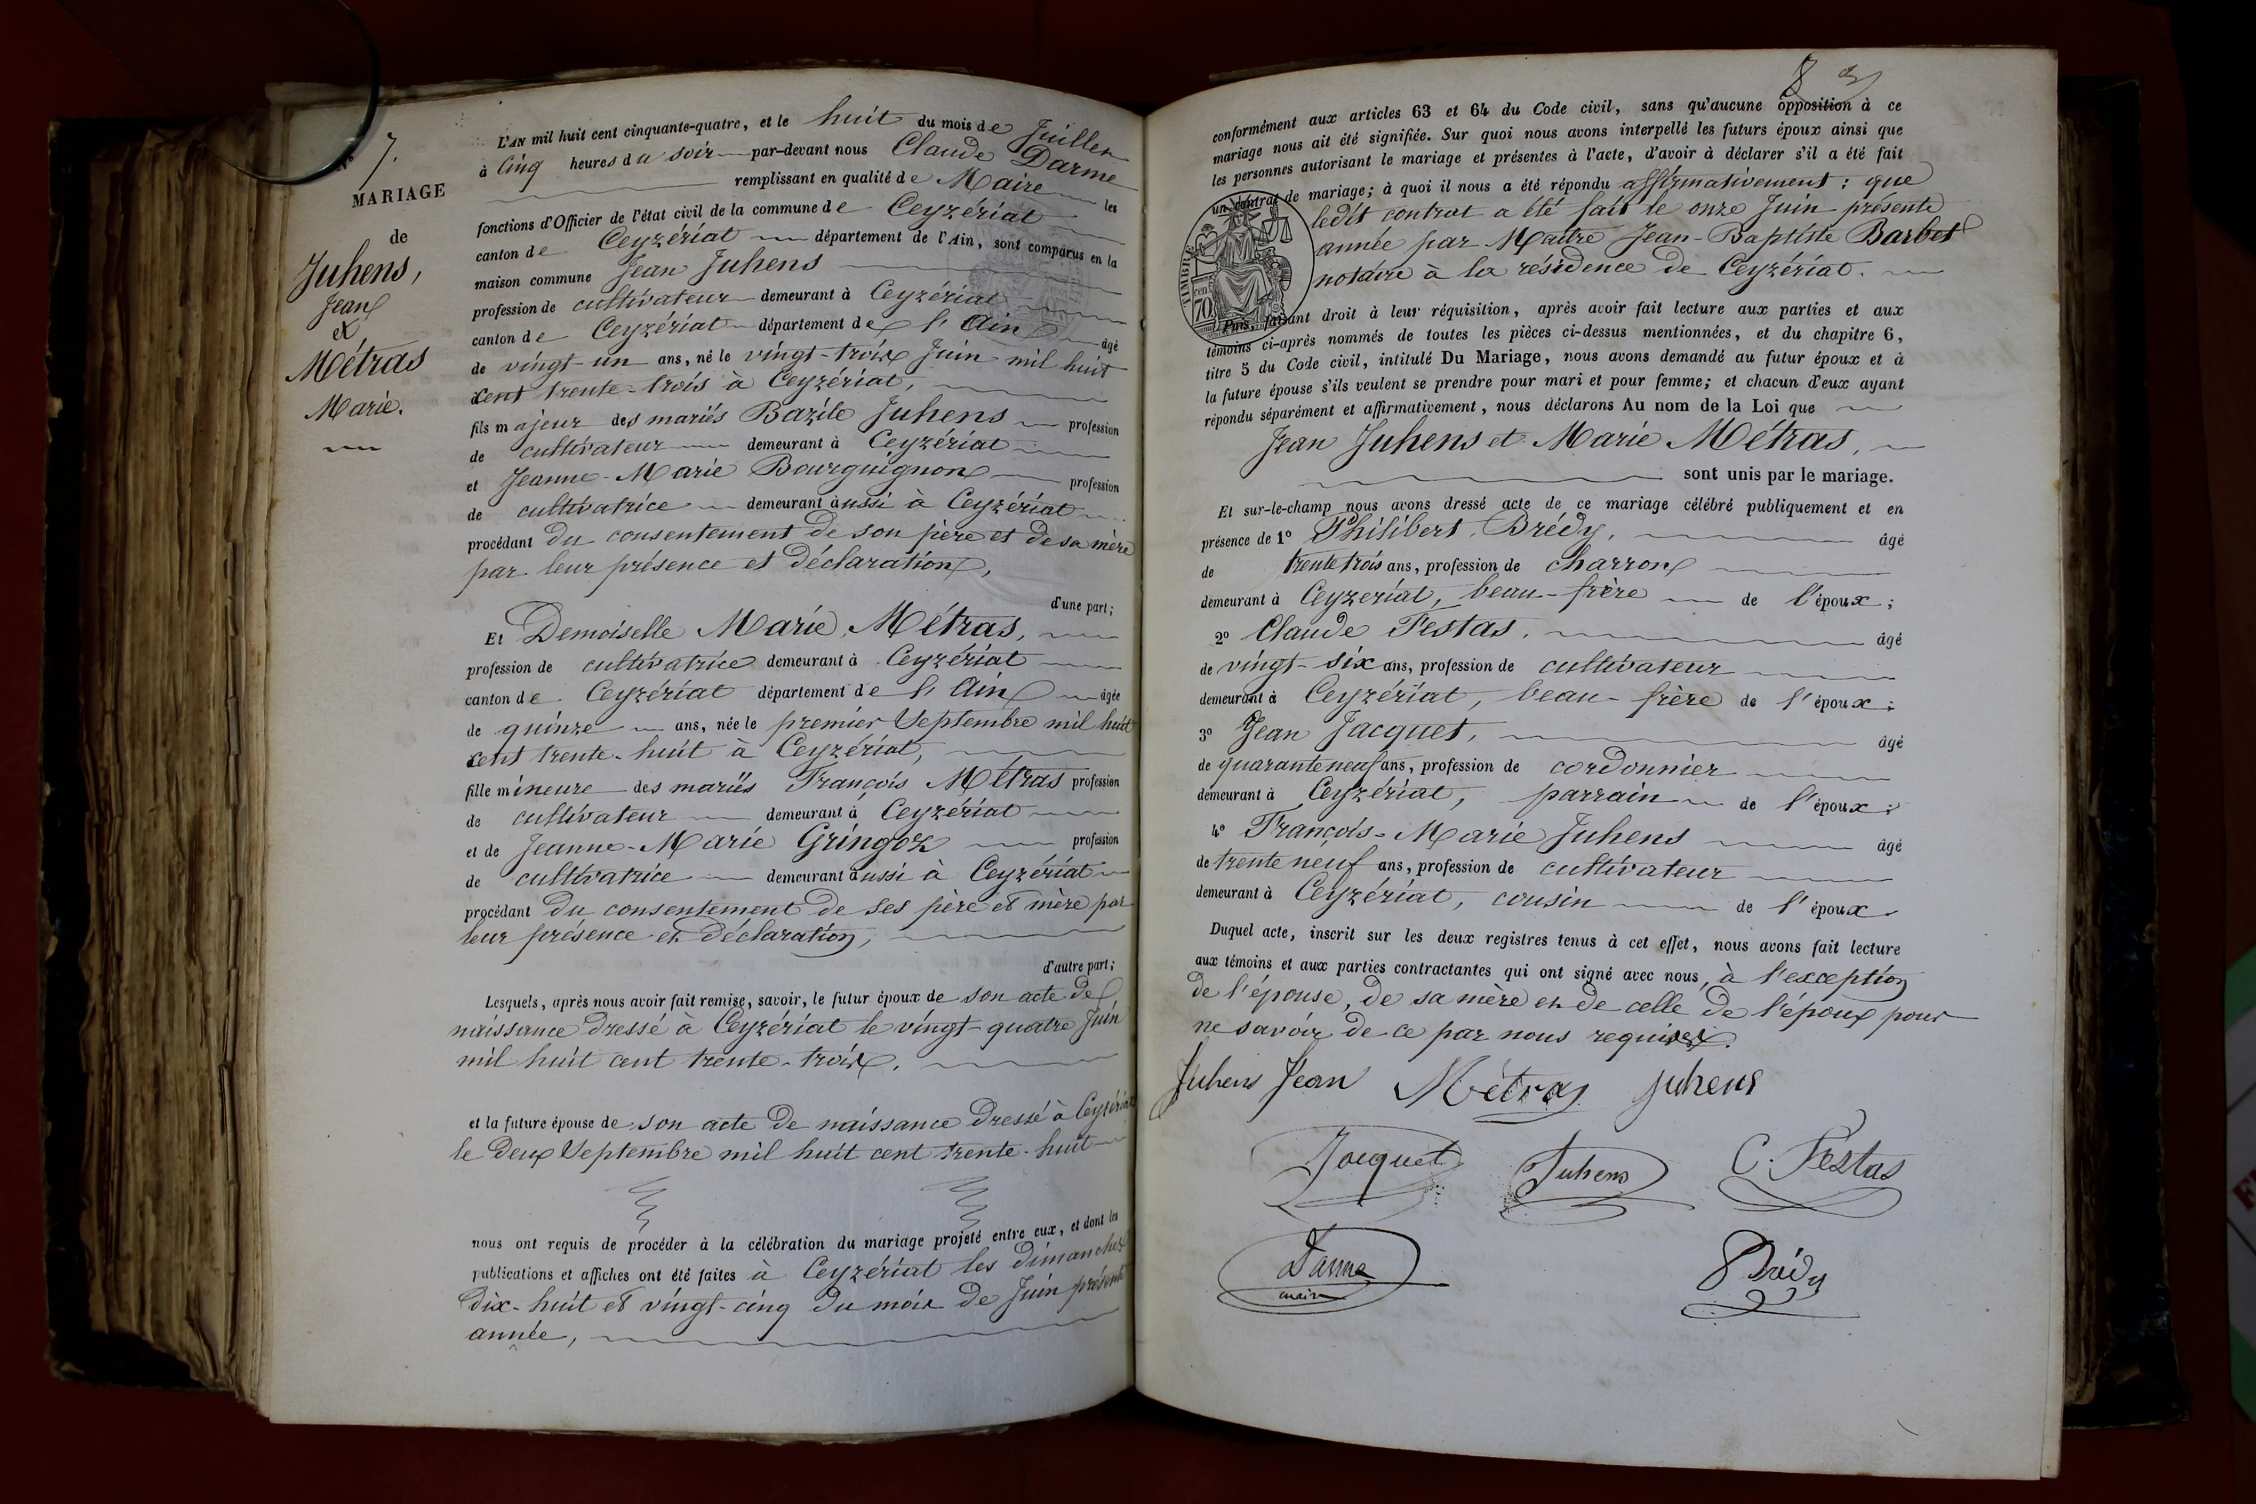 7.
MARIAGE
de
Juhens,
Jean
et
Métras
Marie.
L'AN mil huit cent cinquante-quatre, et le huit du mois de Juillet
à cinq heures du soir par-devant nous Claude Darme
remplissant en qualité de Maire les
fonctions d'Officier de l'état civil de la commune de Ceyzériat
canton de Ceyzériat département de l'Ain, sont comparus en la
maison commune Jean Juhens
profession de cultivateur demeurant à Ceyzériat
canton de Ceyzériat département de l'Ain âgé
de vingt-un ans, né le vingt-trois Juin mil huit
cent trente-trois à Ceyzériat,
fils majeur des mariés Bazile Juhens profession
de cultivateur demeurant à Ceyzériat
et Jeanne-Marie Bourguignon profession
de cultivatrice demeurant aussi à Ceyzériat
procédant du consentement de son père et de sa mère
par leur présence et déclaration,
d'une part;
Et Demoiselle Marie Métras,
profession de cultivatrice demeurant à Ceyzériat
canton de Ceyzériat département de l'Ain âgée
de quinze ans, née le premier Septembre mil huit
cent trente-huit à Ceyzériat,
fille mineure des mariés François Métras profession
de cultivateur demeurant à Ceyzériat
et de Jeanne-Marie Gringoz profession
de cultivatrice demeurant aussi à Ceyzériat
procédant du consentement de ses père et mère par
leur présence et déclaration,
d'autre part;
Lesquels, après nous avoir fait remise, savoir, le futur époux de son acte de
naissance dressé à Ceyzériat le vingt-quatre Juin
mil huit cent trente-trois.
et la future épouse de son acte de naissance dressé à Ceyzériat
le deux Septembre mil huit cent trente-huit
nous ont requis de procéder à la célébration du mariage projeté entre eux, et dont les
publications et affiches ont été faites à Ceyzériat les dimanches
dix-huit et vingt-cinq du mois de Juin présente
année,
8
conformément aux articles 63 et 64 du Code civil, sans qu'aucune opposition à ce
mariage nous ait été signifiée. Sur quoi nous avons interpellé les futurs époux ainsi que
les personnes autorisant le mariage et présentes à l'acte, d'avoir à déclarer s'il a été fait
un contrat de mariage; à quoi il nous a été répondu affirmativement: que
ledit contrat a été fait le onze Juin présente
année par Maître Jean-Baptiste Barbet
notaire à la résidence de Ceyzériat.
TIMBRE
cent
70
Puis, faisant droit à leur réquisition, après avoir fait lecture aux parties et aux
témoins ci-après nommés de toutes les pièces ci-dessus mentionnées, et du chapitre 6,
titre 5 du Code civil, intitulé Du Mariage, nous avons demandé au futur époux et à
la future épouse s'ils veulent se prendre pour mari et pour femme; et chacun d'eux ayant
répondu séparément et affirmativement, nous déclarons Au nom de la Loi que
Jean Juhens et Marie Métras,
sont unis par le mariage.
Et sur-le-champ nous avons dressé acte de ce mariage célébré publiquement et en
présence de 1º Philibert Brédy, âgé
de trente trois ans, profession de charron
demeurant à Ceyzeriat, beau-frère de l'époux;
2º Claude Festas, âgé
de vingt-six ans, profession de cultivateur
demeurant à Ceyzériat, beau-frère de l'époux;
3º Jean Jacquet, âgé
de quarante neuf ans, profession de cordonnier
demeurant à Ceyzériat, parrain de l'époux;
4º François-Marie Juhens âgé
de trente neuf ans, profession de cultivateur
demeurant à Ceyzériat, cousin de l'époux.
Duquel acte, inscrit sur les deux registres tenus à cet effet, nous avons fait lecture
aux témoins et aux parties contractantes qui ont signé avec nous, à l'exception
de l'épouse, de sa mère et de celle de l'époux pour
ne savoir de ce par nous requises.
Juhens Jean Métras Juhens
Jacquet Juhens C. Festas
Darme Brédy
maire